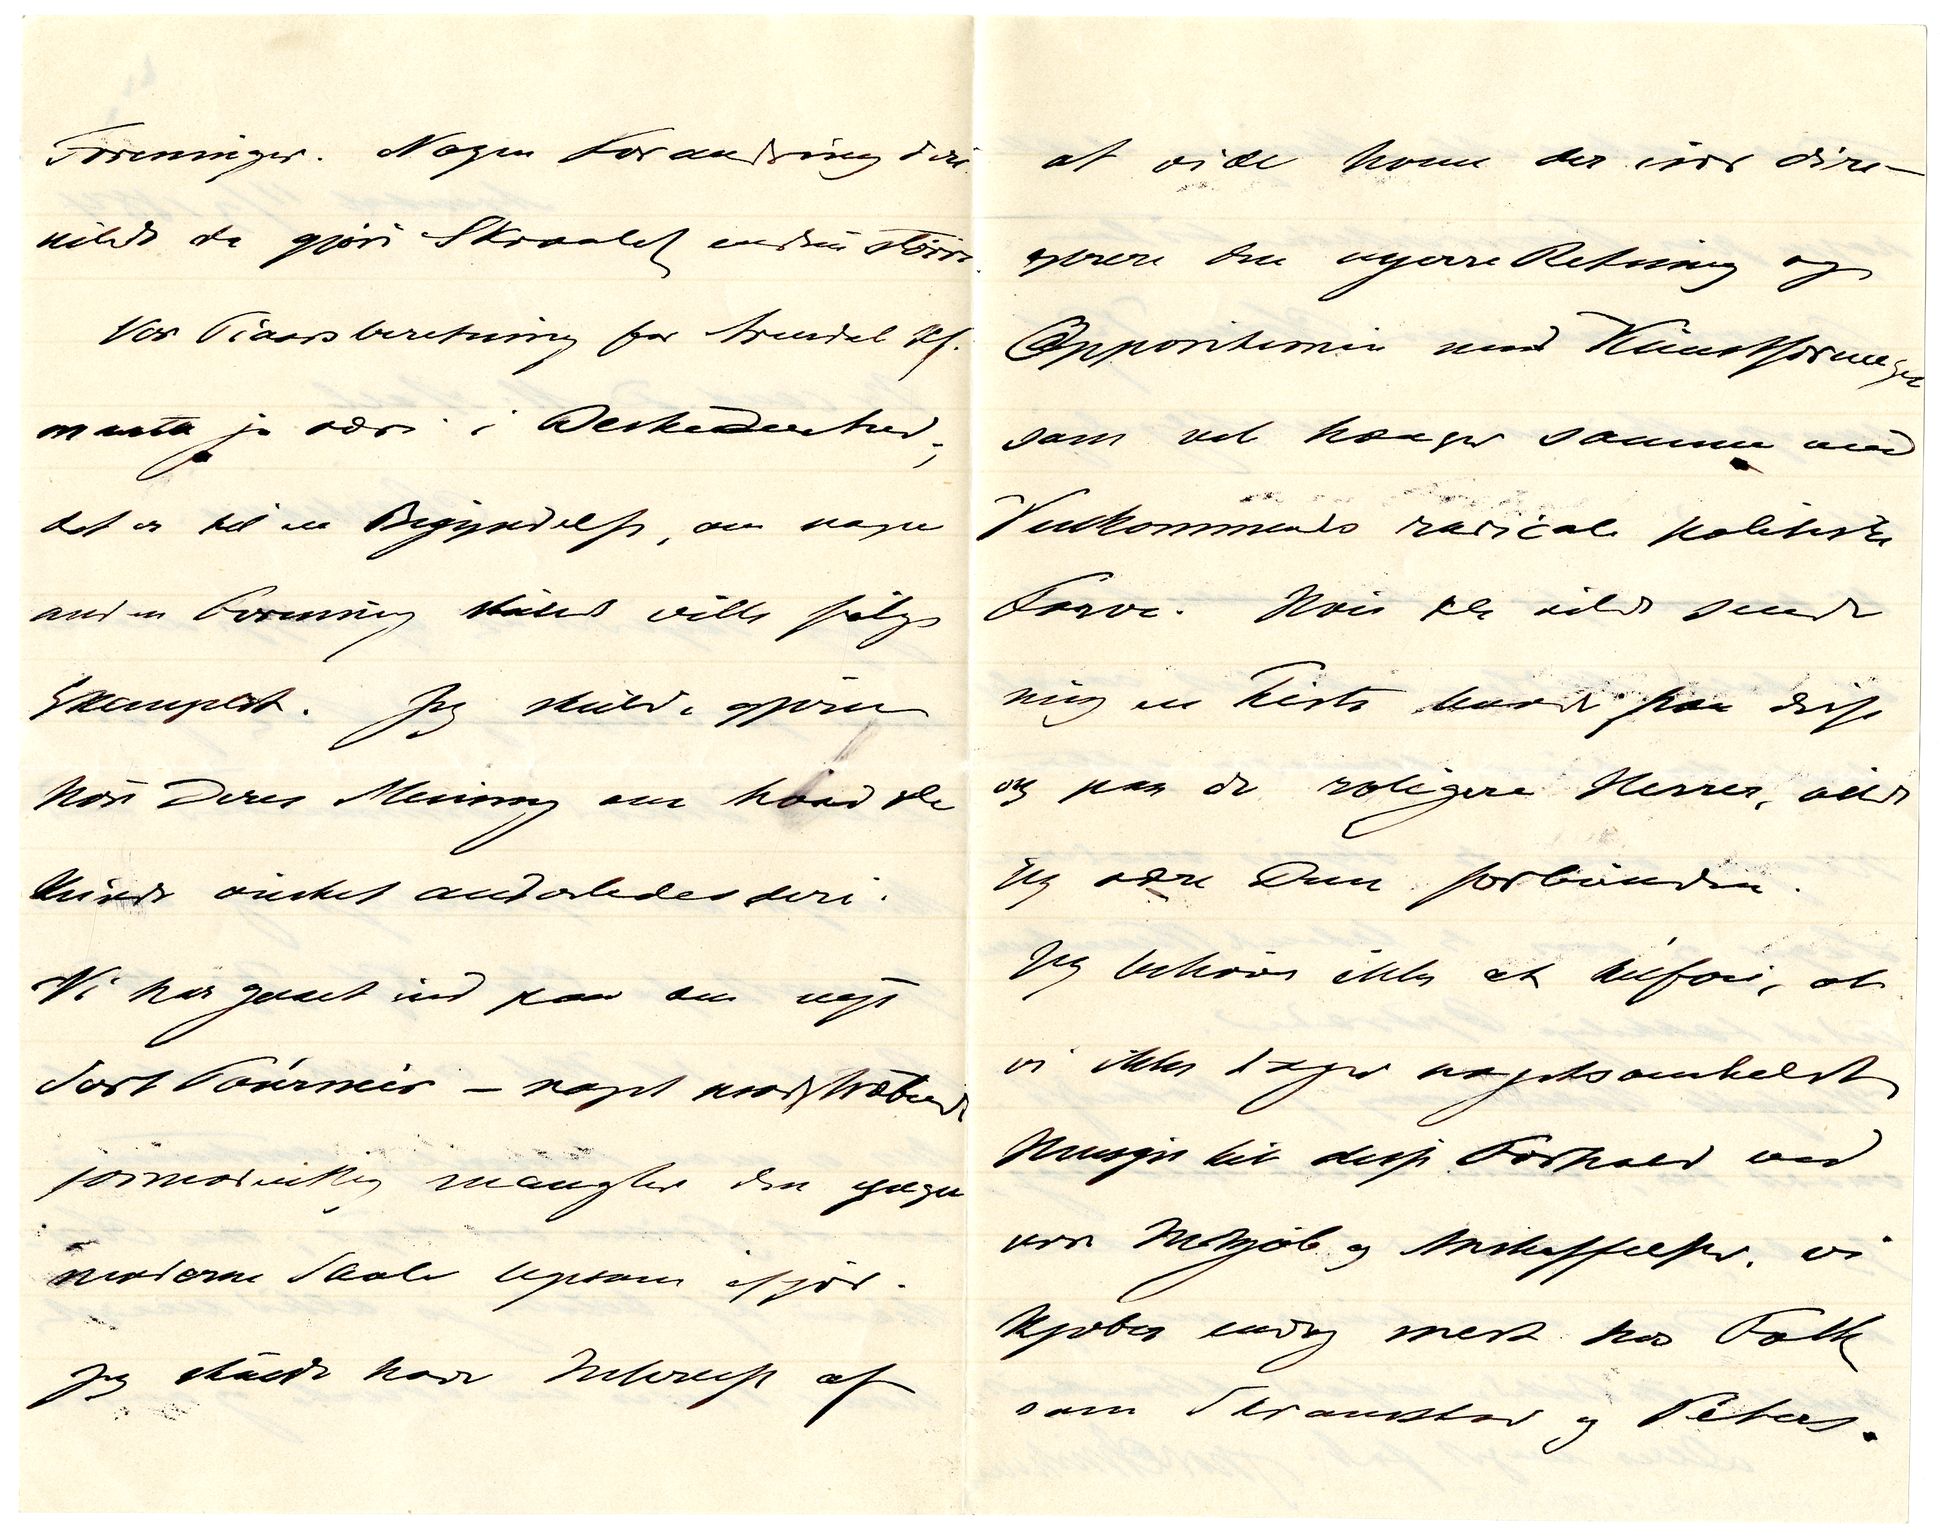 Foreninger. Nogen Forandring deri
vilde da gjøre Skraalet endnu større.
Vor Tiaarsberetning for Arendal Kf.
maatte jo være i Beskedenhed;
det er til en Begyndelse, om nogen
anden Forening skulde ville følge
Exemplet. Jeg skulde gjerne
høre Deres Mening om hvad De
kunde ønsket anderledes deri.
Vi har gaaet ind paa en nyt
Sort
mangler den
moderne Skole ifjor.
Jeg skulde have Interesse af
at vide hvem der især diri-
gerer den nyere Retning og
Oppositionen mod Kunstforeningen
som vel hænger sammen med
Vedkommendes radicale politiske
Farve. Hvis De vilde sende
mig en Liste baade paa disse
og paa de roligere Herrer, vilde
jeg være Dem forbunden.
Jeg behøver ikke at tilføie, at
vi ikke tager nogetsomhelst
Hensyn til disse Forhold ved
vore Indkjøb og Anskaffelser. vi
kjøber endog mest hos Folk
som Skramstad og Peters.